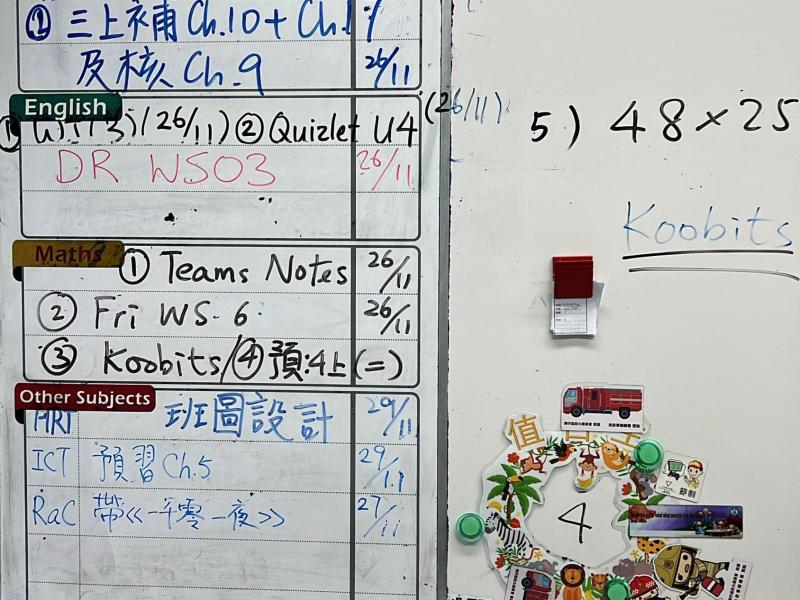 ① 三上補Ch.10+Ch.
及核Ch.9 26/11
English
(26/11) ② Quizlet U4 (26/11)
DR WS03 26/11
Maths ① Teams Notes 26/11
② Fri WS. 6 26/11
③ Koobits/④預:4上(二)
Other Subjects
ART 班圖設計 29/11
ICT 預習Ch.5 29/11
RaC 帶<<一千零一夜>> 27/11
5) 48×25
Koobits
值日生
4
節制